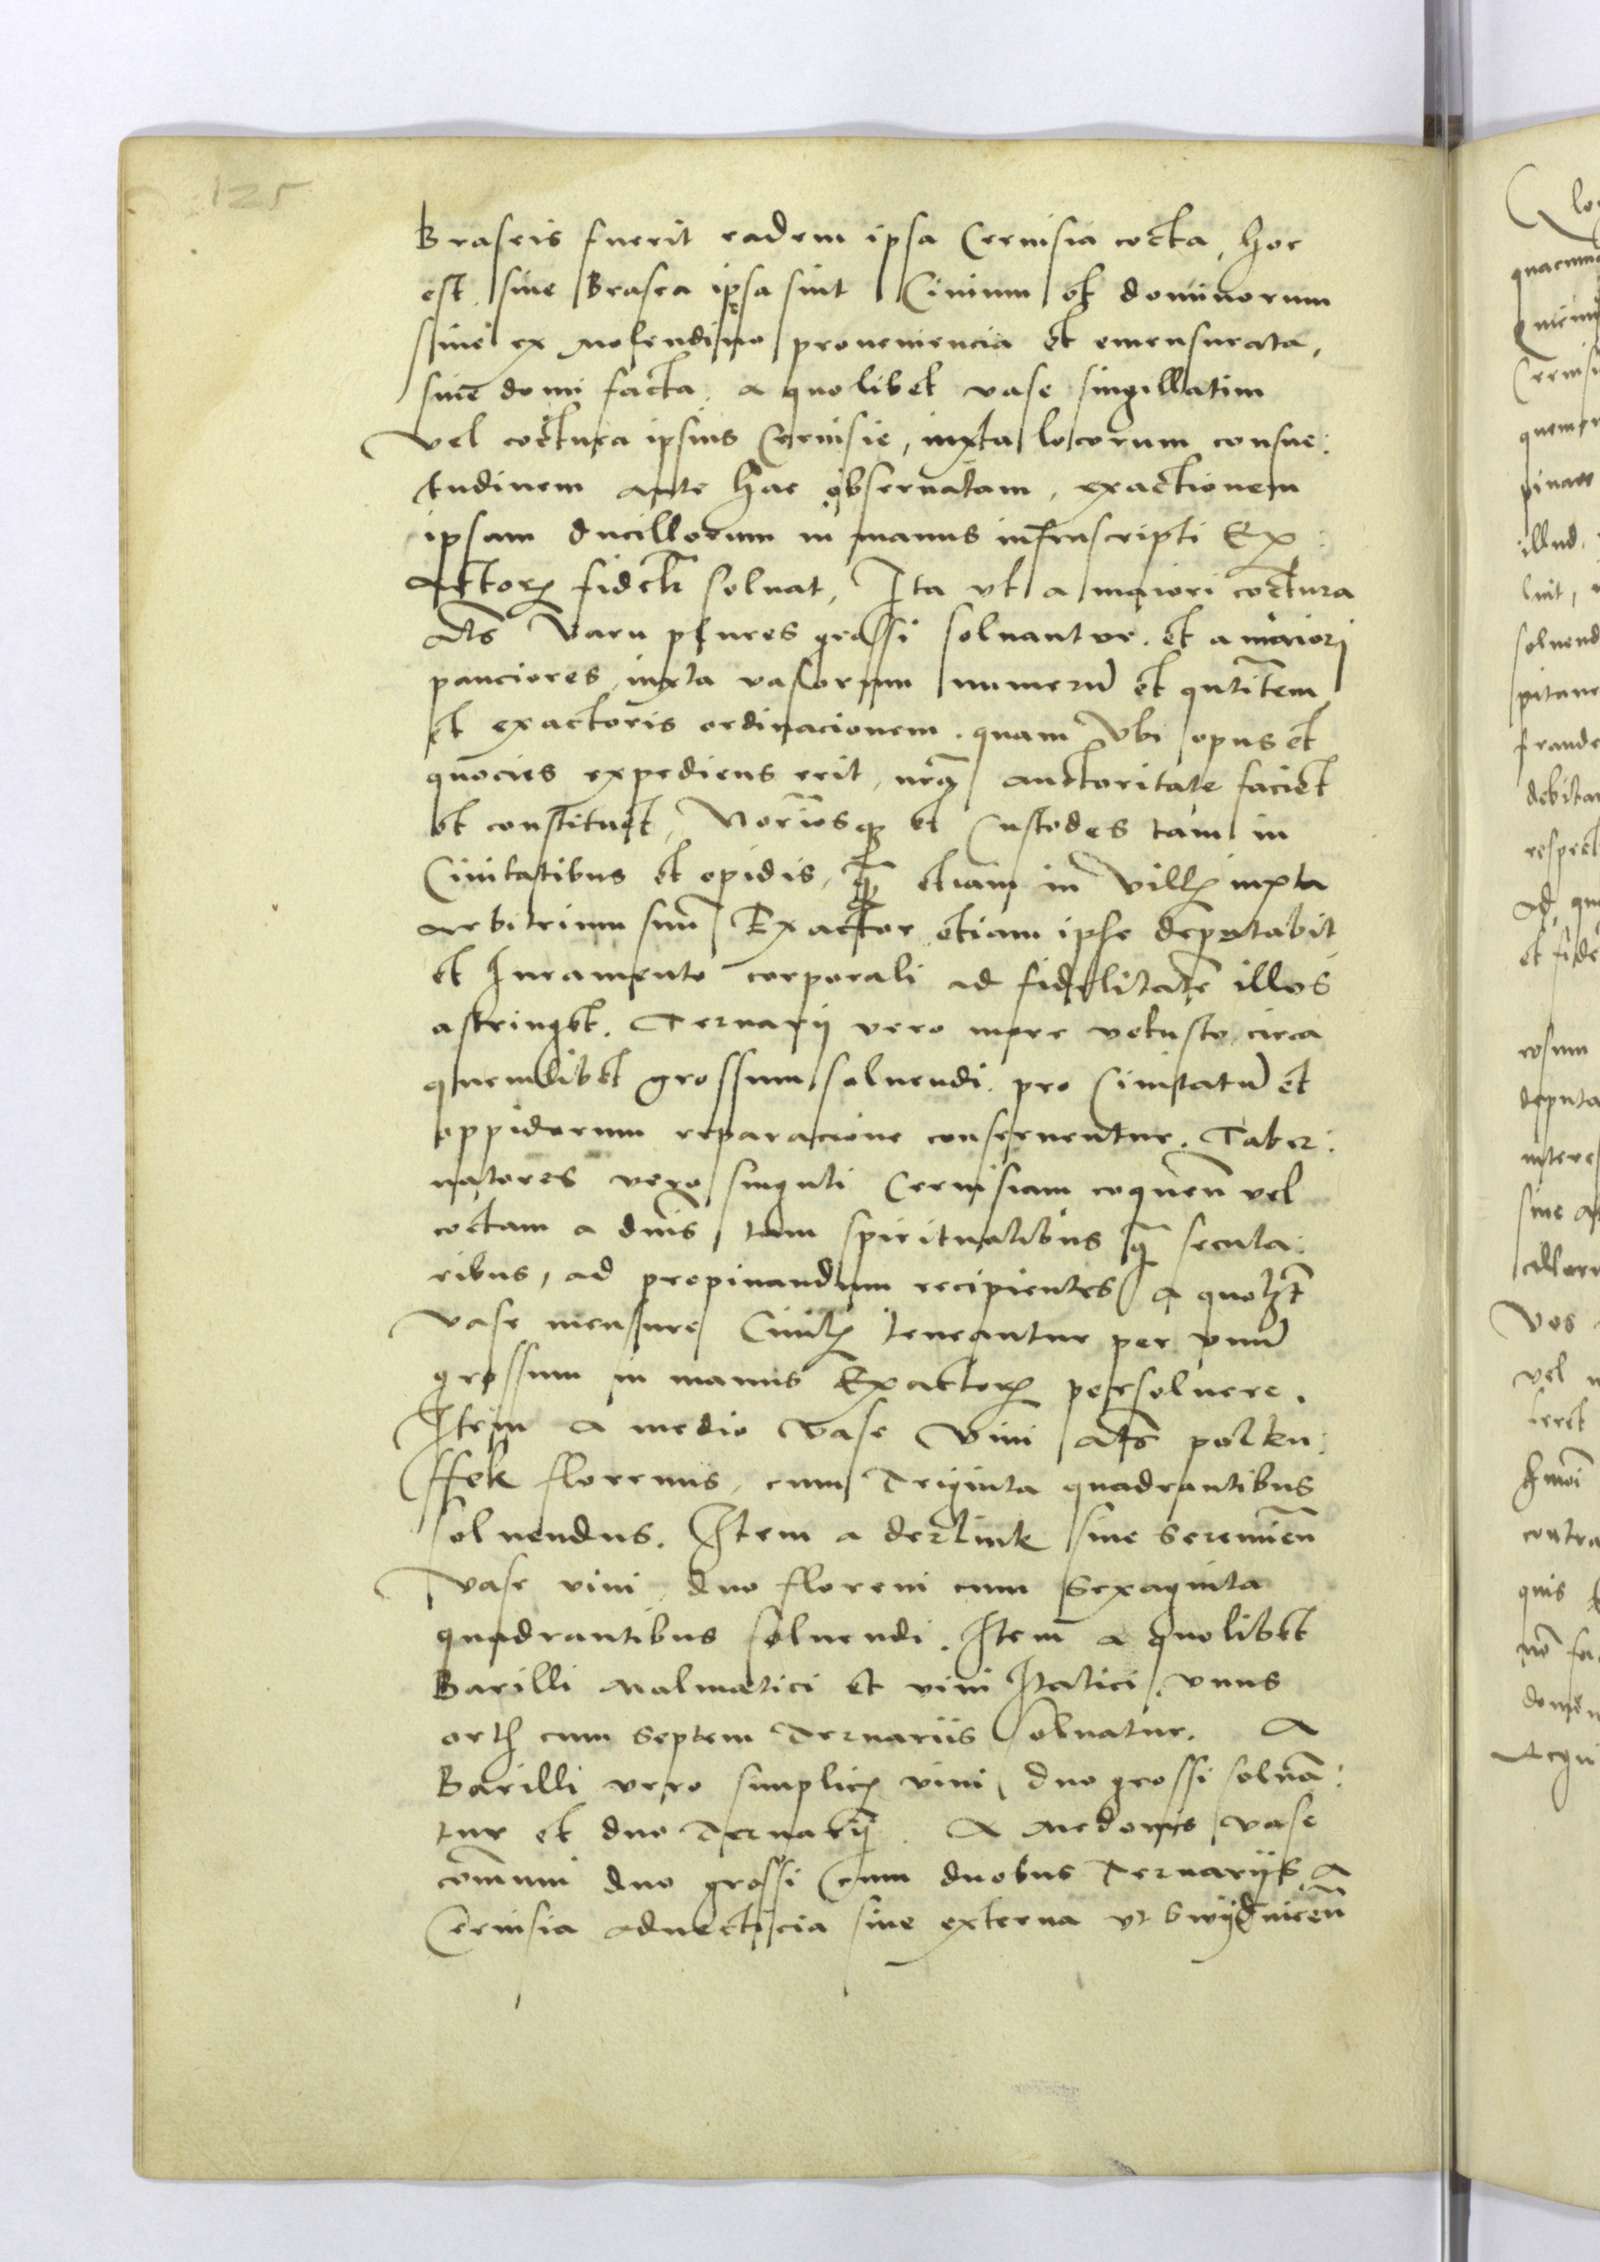 125
Braseis fuerit eadem ipsa Ceruisia cocta, hoc
est, siue Brasea ipsa sint Ciuium et dominorum
siue ex molendino proueniencia et emensurata,
siue domi facta, a quolibet vase singillatim
vel coctura ipsius Ceruisie, iuxta locorum consue:
tudinem ante hac obseruatam, exactionem
ipsam ducillorum in manus infrascripti Ex:
actoris fidelr soluat, Ita vt a maiori coctura
als Varu plures grossi soluantur. et a minori
pauciores, iuxta vasorum numerum et qutitem
et exactoris ordinacionem. quam vbi opus et
quocies expediens erit, nra auctoritate faciet
et constituet, Notriosque et Custodes tam in
Ciuitatibus et opidis, quam etiam in villis iuxta
arbitrium suum Exactor etiam ipse deputabit
et Iuramento corporali ad fidelitatem illos
astringet. Ternarij vero more vetusto circa
quemlibet grossum soluendi, pro Ciuitatum et
oppidorum reparacione conseruentur. Taber:
natores vero singuli Ceruisiam coquen vel
coctam a dnis tam spiritualibus quam secula:
ribus, ad propinandum recipientes a quolzt
vase mensure Ciuilis teneantur per vnum
grossum in manus Exactoris persoluere.
Item a medio vase vini als polku:
ffek florenus, cum Triginta quadrantibus
soluendus. Item a dertink siue Seremien
vase vini, duo floreni cum Sexaginta
quadrantibus soluendi. Item a quolibet
Barilli malmatici et vini Italici, vnus
orth cum septem Ternariis soluatur. A
Barilli vero simplicis vini, duo grossi soluan:
tur et duo Ternarij. A medonis vase
communi duo grossi cum duobus Ternarijs, A
Ceruisia aduecticia siue externa vt Swijdnicen